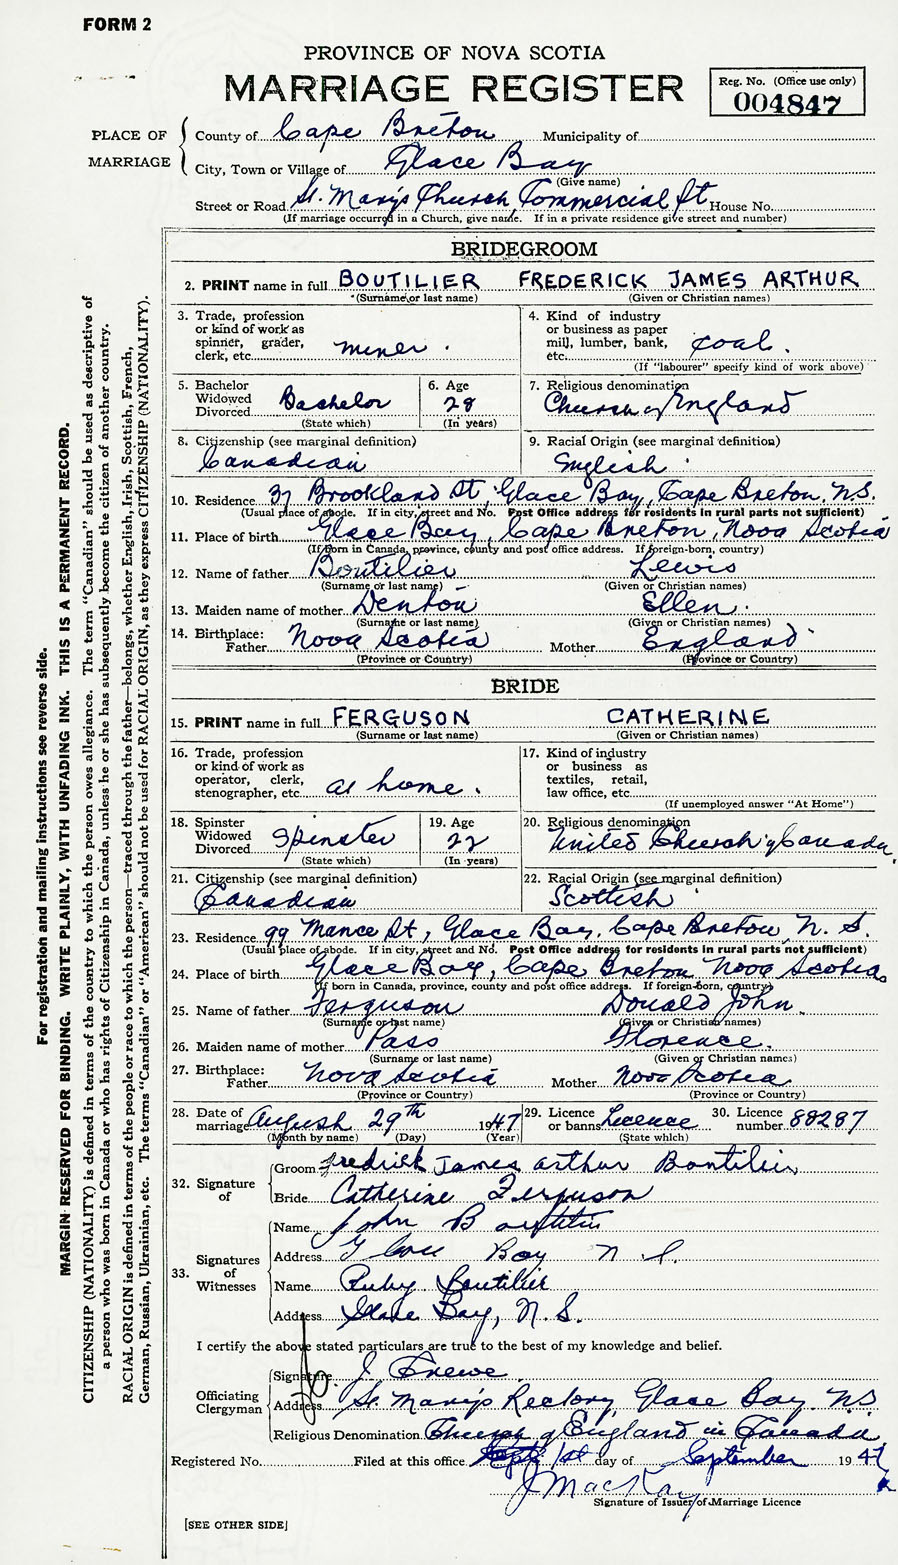 FORM 2
PROVINCE OF NOVA SCOTIA
MARRIAGE REGISTER
Reg. No. (Office use only)
004847
PLACE OF MARRIAGE
County of Cape Breton Municipality of
City, Town or Village of Glace Bay
(Give name)
Street or Road St. Mary's Church, Commercial St House No.
(If marriage occurred in a Church, give name. If in a private residence give street and number)
BRIDEGROOM
2. PRINT name in full BOUTILIER FREDERICK JAMES ARTHUR
(Surname or last name) (Given or Christian names)
3. Trade, profession or kind of work as spinner, grader, clerk, etc. miner.
4. Kind of industry or business as paper mill, lumber, bank, etc. coal.
(If "labourer" specify kind of work above)
5. Bachelor Widowed Divorced Bachelor
(State which)
6. Age 28
(In years)
7. Religious denomination
Church of England
8. Citizenship (see marginal definition)
Canadian
9. Racial Origin (see marginal definition)
English
10. Residence 37 Brookland St, Glace Bay, Cape Breton, N.S.
(Usual place of abode. If in city, street and No. Post Office address for residents in rural parts not sufficient)
11. Place of birth Glace Bay, Cape Breton, Nova Scotia
(If born in Canada, province, county and post office address. If foreign-born, country)
12. Name of father Boutilier Lewis
(Surname or last name) (Given or Christian names)
13. Maiden name of mother Denton Ellen.
(Surname or last name) (Given or Christian names)
14. Birthplace:
Father Nova Scotia Mother England
(Province or Country) (Province or Country)
BRIDE
15. PRINT name in full FERGUSON CATHERINE
(Surname or last name) (Given or Christian names)
16. Trade, profession or kind of work as operator, clerk, stenographer, etc at home.
17. Kind of industry or business as textiles, retail, law office, etc.
(If unemployed answer "At Home")
18. Spinster Widowed Divorced Spinster
(State which)
19. Age 22
(In years)
20. Religious denomination
United Church of Canada,
21. Citizenship (see marginal definition)
Canadian
22. Racial Origin (see marginal definition)
Scottish
23. Residence 99 Mance St, Glace Bay, Cape Breton N. S.
(Usual place of abode. If in city, street and No. Post Office address for residents in rural parts not sufficient)
24. Place of birth Glace Bay, Cape Breton Nova Scotia
(If born in Canada, province, county and post office address. If foreign-born, country)
25. Name of father Ferguson Donald John.
(Surname or last name) (Given or Christian names)
26. Maiden name of mother Pass Florence.
(Surname or last name) (Given or Christian names)
27. Birthplace:
Father Nova Scotia Mother Nova Scotia
(Province or Country) (Province or Country)
28. Date of marriage August 29th 1947
(Month by name) (Day) (Year)
29. Licence or banns Licence
(State which)
30. Licence number 88287
32. Signature of
Groom Fredrick James Arthur Boutilier
Bride Catherine Ferguson
33. Signatures of Witnesses
Name John Boutilier
Address Glace Bay N S
Name Ruby Boutilier
Address Glace Bay, N. S.
I certify the above stated particulars are true to the best of my knowledge and belief.
Officiating Clergyman
Signature J. Frewe.
Address St. Mary's Rectory, Glace Bay. NS
Religious Denomination Church of England in Canada
Registered No. Filed at this office 1st day of September 1947
J MacKay
Signature of Issuer of Marriage Licence
[SEE OTHER SIDE]
For registration and mailing instructions see reverse side.
MARGIN RESERVED FOR BINDING. WRITE PLAINLY, WITH UNFADING INK. THIS IS A PERMANENT RECORD.
CITIZENSHIP (NATIONALITY) is defined in terms of the country to which the person owes allegiance. The term "Canadian" should be used as descriptive of
a person who was born in Canada or who has rights of Citizenship in Canada, unless he or she has subsequently become the citizen of another country.
RACIAL ORIGIN is defined in terms of the people or race to which the person—traced through the father—belongs, whether English, Irish, Scottish, French,
German, Russian, Ukrainian, etc. The terms "Canadian" or "American" should not be used for RACIAL ORIGIN, as they express CITIZENSHIP (NATIONALITY).